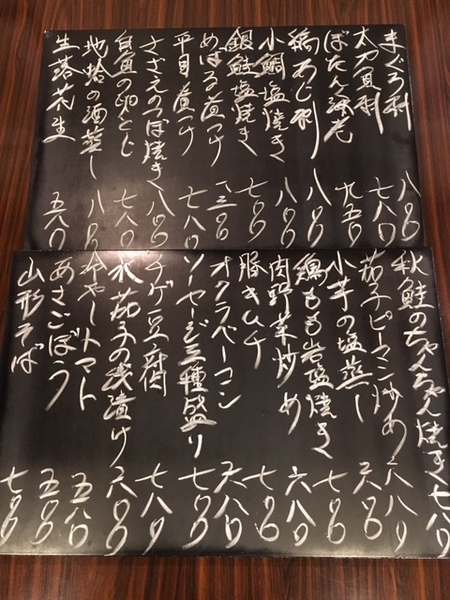 まぐろ刺 八〇〇
大刀貝刺 七八〇
ぼたん海老 九五〇
縞あじ刺 八〇〇
小鯛塩焼き 八〇〇
銀鮭塩焼き 七〇〇
めばる煮つけ 一、三〇〇
平目煮つけ 七八〇
さざえのつぼ焼き 八〇〇
白魚の卵とじ 七八〇
地蛤の酒蒸し 八〇〇
生落花生 五八〇
秋鮭のちゃんちゃん焼き 七八〇
茄子ピーマン炒め 六八〇
小芋の塩蒸し 六〇〇
鶏もも岩塩焼き 七〇〇
肉野菜炒め 六八〇
豚キムチ 七〇〇
オクラベーコン 六八〇
ソーセージ三種盛り 七〇〇
チゲ豆腐 七八〇
水茄子の浅漬け 六〇〇
冷やしトマト 五八〇
あさごぼう 五〇〇
山形そば 七〇〇